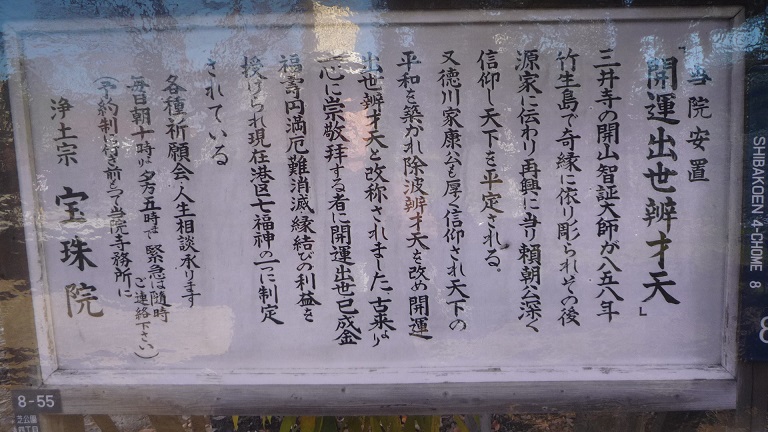 当院安置
「開運出世辨才天」
三井寺の開山智証大師が八五八年
竹生島で奇縁に依り彫られその後
源家に伝わり再興に当り頼朝公深く
信仰し天下を平定される。
又徳川家康公も厚く信仰され天下の
平和を築かれ除波辨才天を改め開運
出世辨才天と改称されました。古来より
一心に崇敬拝する者に開運出世巳成金
福寿円満厄難消滅縁結びの利益を
授けられ現在港区七福神の一つに制定
されている
各種祈願会・人生相談承ります
毎日朝十時より夕方五時まで 緊急は随時ご連絡下さい
(予約制につき前もって当院寺務所に)
浄土宗 宝珠院
SHIBAKOEN 4-CHOME 8
8
8-55
芝公園
四丁目